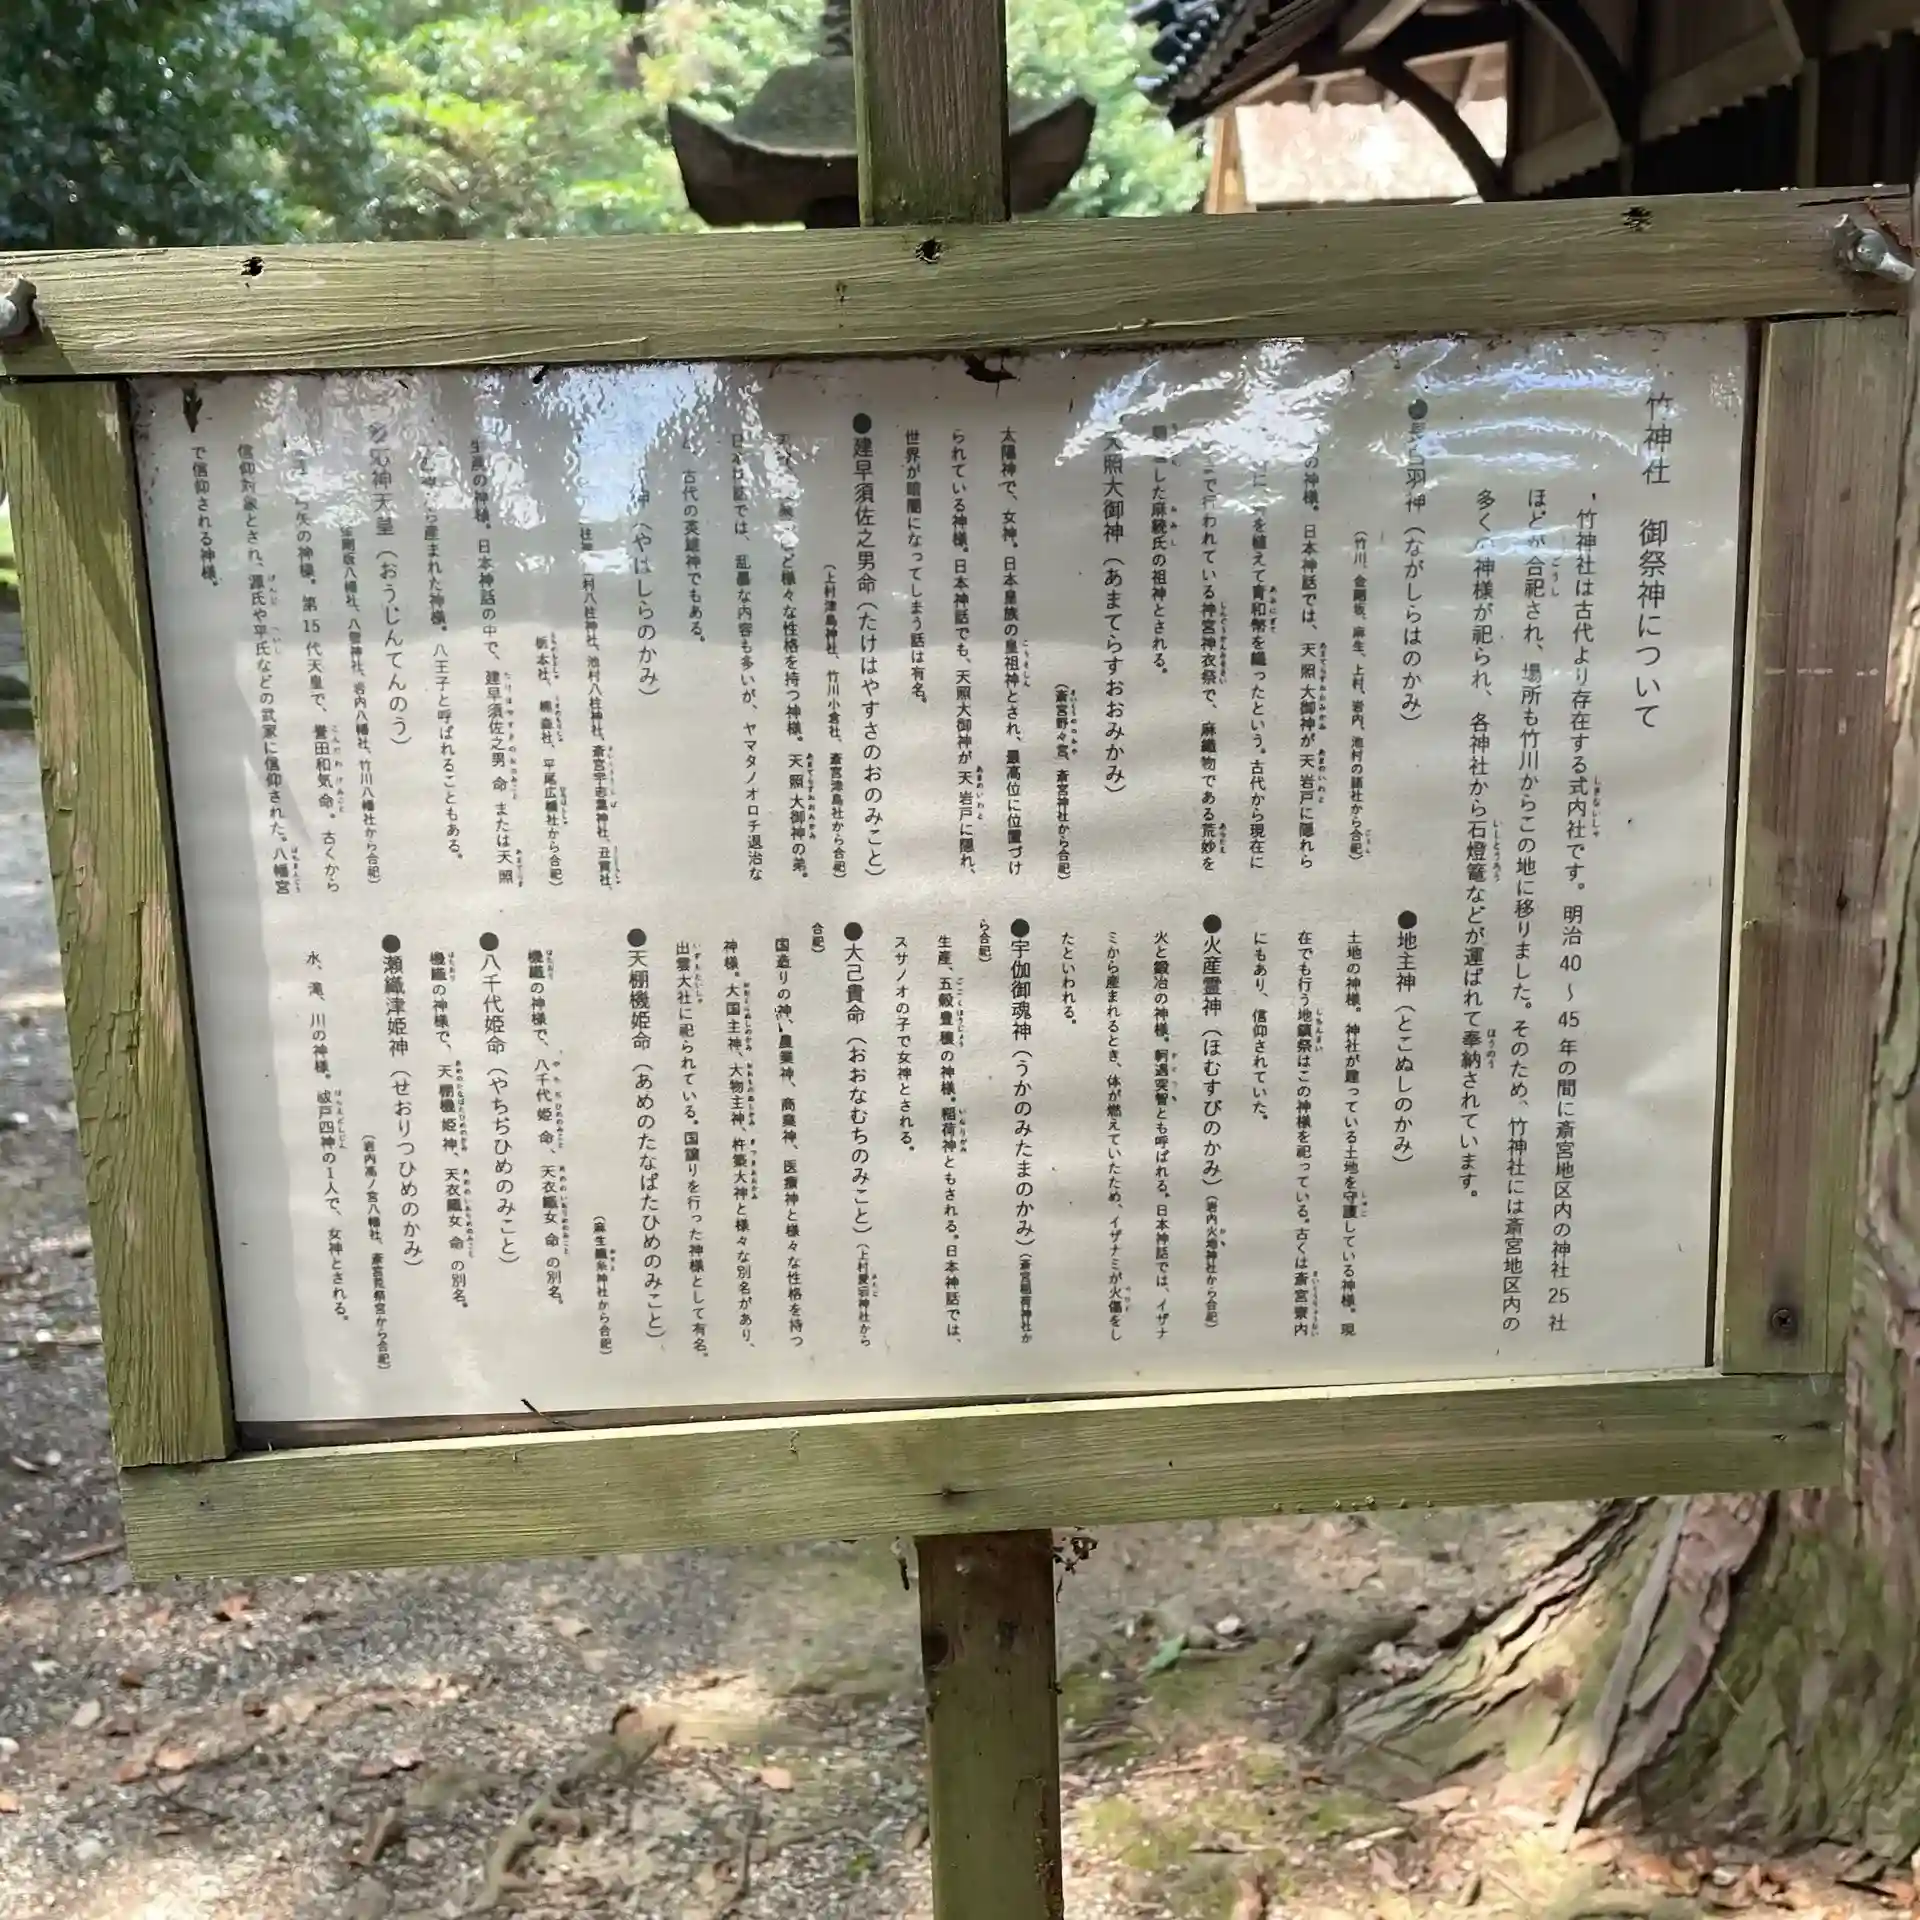 竹神社 御祭神について
竹神社は古代より存在する式内社です。明治40～45年の間に斎宮地区内の神社25社
ほどが合祀され、場所も竹川からこの地に移りました。そのため、竹神社には斎宮地区内の
多くの神様が祀られ、各神社から石燈篭などが運ばれて奉納されています。
●長白羽神（ながしらはのかみ）
（竹川、金剛坂、麻生、上村、岩内、池村の諸社から合祀）
の神様。日本神話では、天照大御神が天岩戸に隠れら
を植えて青和幣を織ったという。古代から現在に
で行われている神宮神衣祭で、麻織物である荒妙を
した麻績氏の祖神とされる。
天照大御神（あまてらすおおみかみ）
（斎宮野々宮、斎宮神社から合祀）
太陽神で、女神。日本皇族の皇祖神とされ、最高位に位置づけ
られている神様。日本神話でも、天照大御神が天岩戸に隠れ、
世界が暗闇になってしまう話は有名。
●建早須佐之男命（たけはやすさのおのみこと）
（上村津島神社、竹川小倉社、斎宮津島社から合祀）
など様々な性格を持つ神様。天照大御神の弟。
日本神話では、乱暴な内容も多いが、ヤマタノオロチ退治な
古代の英雄神でもある。
神（やはしらのかみ）
上村八柱神社、池村八柱神社、斎宮宇志葉神社、丑寅社、
栃本社、楠森社、平尾広幡社から合祀）
生産の神様。日本神話の中で、建早須佐之男命または天照
から産まれた神様。八王子と呼ばれることもある。
応神天皇（おうじんてんのう）
金剛坂八幡社、八雲神社、岩内八幡社、竹川八幡社から合祀）
矢の神様。第15代天皇で、誉田和気命。古くから
信仰対象とされ、源氏や平氏などの武家に信仰された。八幡宮
で信仰される神様。
●地主神（とこぬしのかみ）
土地の神様。神社が建っている土地を守護している神様。現
在でも行う地鎮祭はこの神様を祀っている。古くは斎宮寮内
にもあり、信仰されていた。
●火産霊神（ほむすびのかみ）（岩内火地神社から合祀）
火と鍛冶の神様。軻遇突智とも呼ばれる。日本神話では、イザナ
ミから産まれるとき、体が燃えていたため、イザナミが火傷をし
たといわれる。
●宇伽御魂神（うかのみたまのかみ）（斎宮稲荷神社か
ら合祀）
生産、五穀豊穣の神様。稲荷神ともされる。日本神話では、
スサノオの子で女神とされる。
●大己貴命（おおなむちのみこと）（上村愛宕神社から
合祀）
国造りの神、農業神、商業神、医療神と様々な性格を持つ
神様。大国主神、大物主神、杵築大神と様々な別名があり、
出雲大社に祀られている。国譲りを行った神様として有名。
●天棚機姫命（あめのたなばたひめのみこと）
（麻生織糸神社から合祀）
機織の神様で、八千代姫命、天衣織女命の別名。
●八千代姫命（やちぢひめのみこと）
機織の神様で、天棚機姫神、天衣織女命の別名。
●瀬織津姫神（せおりつひめのかみ）
（岩内高ノ宮八幡社、斎宮荒祭宮から合祀）
水、滝、川の神様。祓戸四神の1人で、女神とされる。